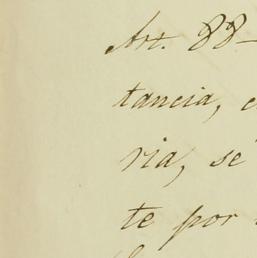 Art. 88-
tancia,
ria, se
te por